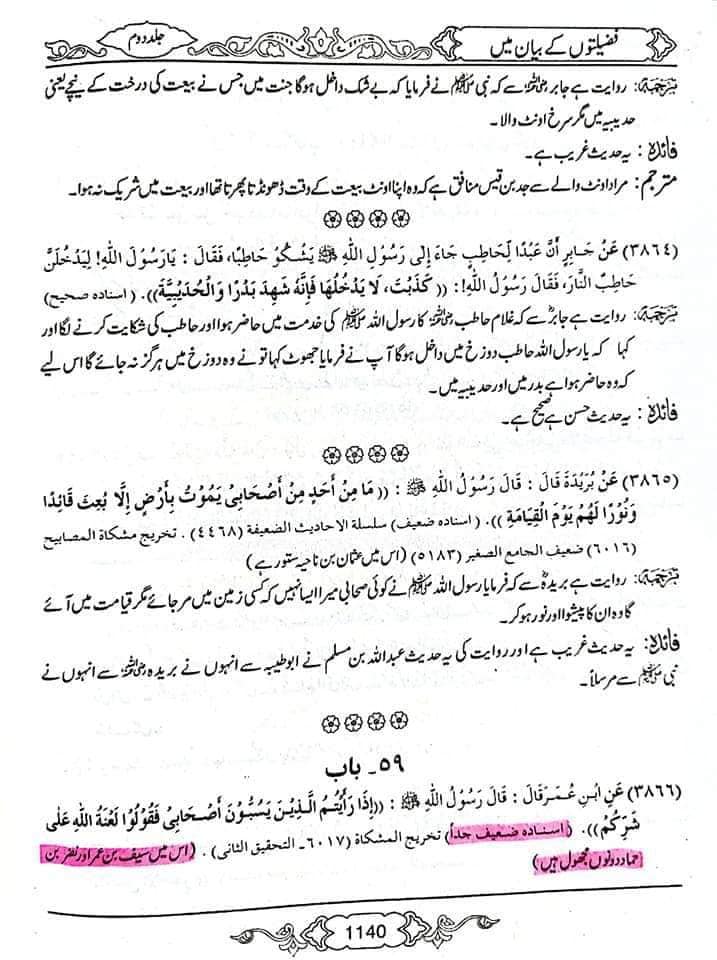 فضیلتوں کے بیان میں
جلد دوم
ترجمہ: روایت ہے جابر رضی اللہ عنہ سے کہ نبی ﷺ نے فرمایا کہ بے شک داخل ہوگا جنت میں جس نے بیعت کی درخت کے نیچے یعنی
حدیبیہ میں مگر سرخ اونٹ والا۔
فائدہ: یہ حدیث غریب ہے۔
مترجم: مراد اونٹ والے سے جد بن قیس منافق ہے کہ وہ اپنا اونٹ بیعت کے وقت ڈھونڈتا پھرتا تھا اور بیعت میں شریک نہ ہوا۔
(٣٨٦٤) عَنْ جَابِرٍ أَنَّ عَبْدًا لِحَاطِبٍ جَاءَ إِلَى رَسُولِ اللهِ ﷺ يَشْكُو حَاطِبًا، فَقَالَ : يَارَسُولَ اللهِ! لِيَدْخُلَنَّ
حَاطِبُ النَّارَ، فَقَالَ رَسُولُ اللهِ!: (( كَذَبْتَ، لَا يَدْخُلُهَا فَإِنَّهُ شَهِدَ بَدْرًا وَالْحُدَيْبِيَّةَ )). ( اسناده صحيح)
ترجمہ: روایت ہے جابرؓ سے کہ غلام حاطب رضی اللہ عنہ کا رسول اللہ ﷺ کی خدمت میں حاضر ہوا اور حاطب کی شکایت کرنے لگا اور
کہا کہ یا رسول اللہ حاطب دوزخ میں داخل ہوگا آپ نے فرمایا جھوٹ کہا تو نے وہ دوزخ میں ہرگز نہ جائے گا اس لیے
کہ وہ حاضر ہوا ہے بدر میں اور حدیبیہ میں۔
فائدہ: یہ حدیث حسن ہے صحیح ہے۔
(٣٨٦٥) عَنْ بُرَيْدَةَ قَالَ : قَالَ رَسُولُ اللهِ ﷺ : (( مَا مِنْ أَحَدٍ مِنْ أَصْحَابِيْ يَمُوْتُ بِأَرْضٍ إِلَّا بُعِثَ قَائِدًا
وَنُوْرًا لَهُمْ يَوْمَ الْقِيَامَةِ )). ( اسناده ضعيف) سلسلة الاحاديث الضعيفة (٤٤٦٨) . تخريج مشكاة المصابيح
(٦٠١٦) ضعيف الجامع الصغير (٥١٨٣) (اس میں عثمان بن ناجیہ مستور ہے)
ترجمہ: روایت ہے بریدہؓ سے کہ فرمایا رسول اللہ ﷺ نے کوئی صحابی میرا ایسا نہیں کہ کسی زمین میں مر جائے مگر قیامت میں آئے
گا وہ ان کا پیشوا اور نور ہو کر۔
فائدہ: یہ حدیث غریب ہے اور روایت کی یہ حدیث عبداللہ بن مسلم نے ابوطیبہ سے انہوں نے بریدہ رضی اللہ عنہ سے انہوں نے
نبی ﷺ سے مرسلاً۔
٥٩۔ باب
(٣٨٦٦) عَنِ ابْنِ عُمَرَ قَالَ : قَالَ رَسُولُ اللهِ ﷺ : ((إِذَا رَأَيْتُمُ الَّذِيْنَ يَسُبُّوْنَ أَصْحَابِيْ فَقُوْلُوْا لَعْنَةُ اللهِ عَلٰى
شَرِّكُمْ)). ( اسناده ضعيف جداً) تخريج المشكاة (٦٠١٧۔ التحقيق الثانى) . (اس میں سیف بن عمر اور نضر بن
حماد دونوں مجہول ہیں)
1140